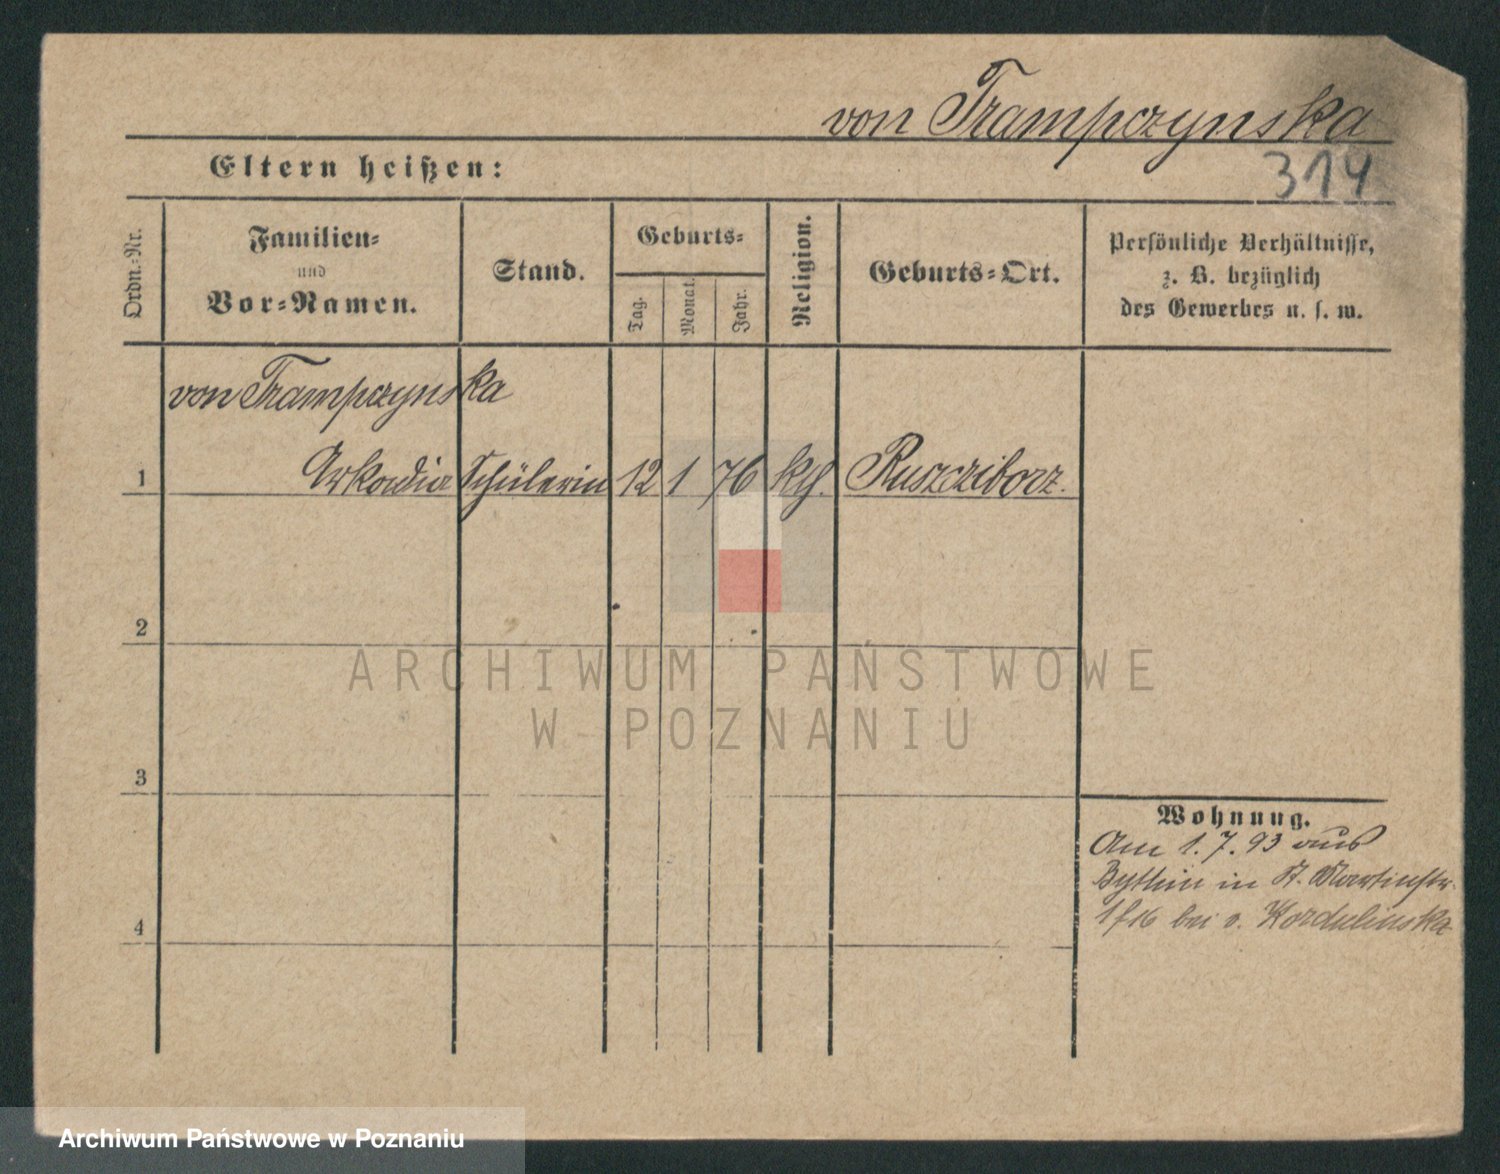 von Trampczynska
Eltern heißen:
314
Ordn.-Nr.
Familien-
und
Vor-Namen.
Stand.
Geburts-
Tag.
Monat.
Jahr.
Religion.
Geburts-Ort.
Persönliche Verhältnisse,
z. B. bezüglich
des Gewerbes u. s. w.
von Trampczynska
1 Arkadia Schülerin 12 1 76 kth. Ruszcziborz.
2
3
4
Wohnung.
Am 1. 7. 93 aus
Bythin in St. Martinstr.
bei v. Kordulinska
ARCHIWUM PAŃSTWOWE
W POZNANIU
Archiwum Państwowe w Poznaniu